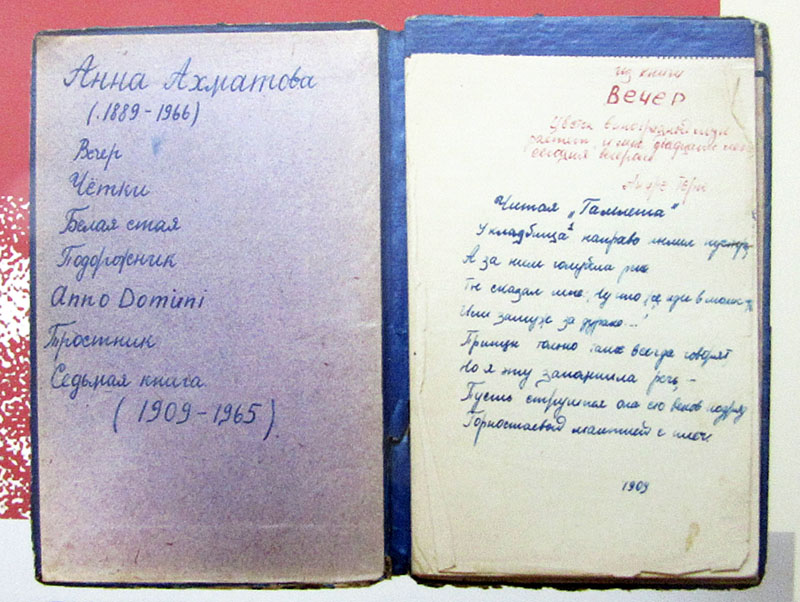 Анна Ахматова
(.1889-1966)
Вечер
Чётки
Белая стая
Подорожник
Anno Domini
Тростник
Седьмая книга
(1909-1965)
из книги
Вечер
Цветы виноградной лозы
растет, и мне двадцать лет
сегодня вечером
Андре Терье
Читая „Гамлета"
У кладбища направо пылил пустырь
А за ним голубела река
Ты сказал мне: Ну что ж, иди в монастырь
Или замуж за дурака...!
Принцы только такое всегда говорят
Но я эту запомнила речь,-
Пусть струится она сто веков подряд
Горностаевой мантией с плеч
1909